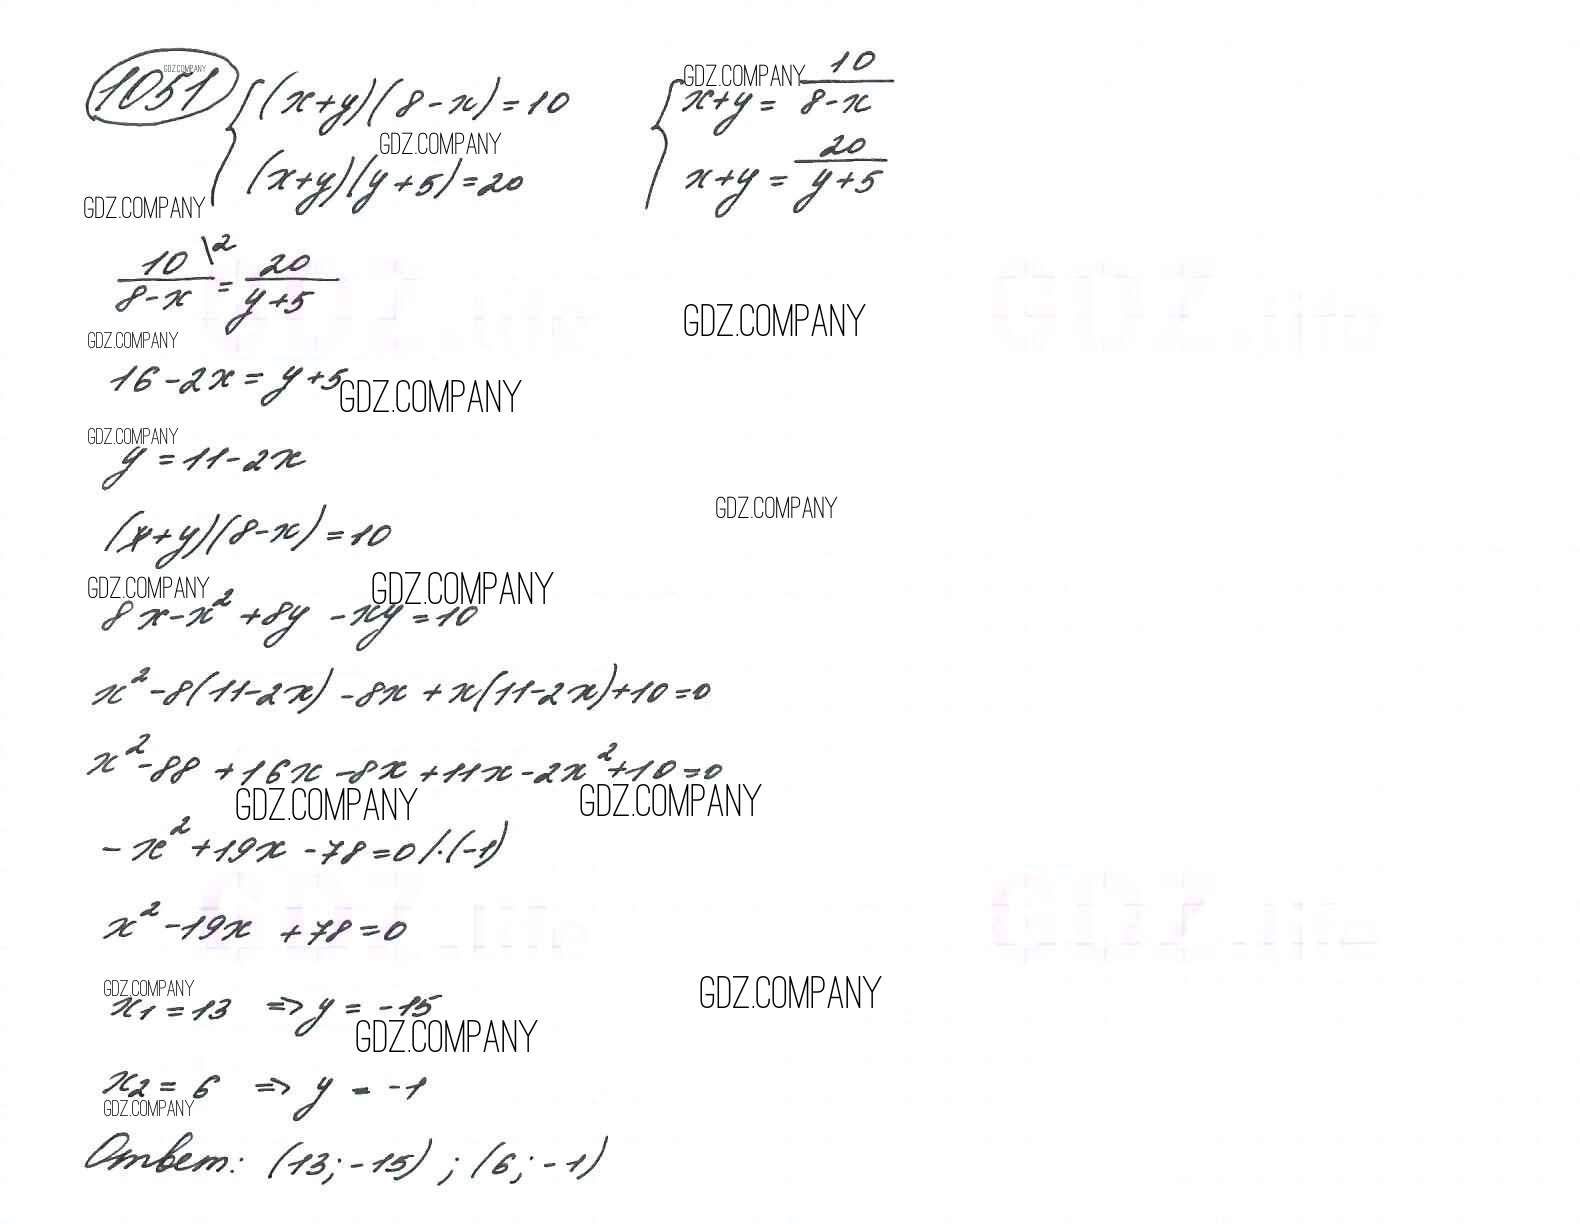 1051 GDZ.COMPANY { (x+y)(8-x)=10 GDZ.COMPANY { x+y = 10/(8-x)
GDZ.COMPANY
(x+y)(y+5)=20 x+y = 20/(y+5)
GDZ.COMPANY
10\2/(8-x) = 20/(y+5)
GDZ.COMPANY
GDZ.COMPANY
16-2x = y+5
GDZ.COMPANY
GDZ.COMPANY
y = 11-2x
GDZ.COMPANY
(x+y)(8-x) = 10
GDZ.COMPANY GDZ.COMPANY
8x-x² +8y -xy = 10
x² -8(11-2x) -8x + x(11-2x)+10=0
x² -88 +16x -8x +11x -2x² +10=0
GDZ.COMPANY GDZ.COMPANY
-x² +19x -78=0 /·(-1)
x² -19x +78=0
GDZ.COMPANY GDZ.COMPANY
x₁ = 13 => y = -15
GDZ.COMPANY
x₂ = 6 => y = -1
GDZ.COMPANY
Ответ: (13; -15) ; (6; -1)